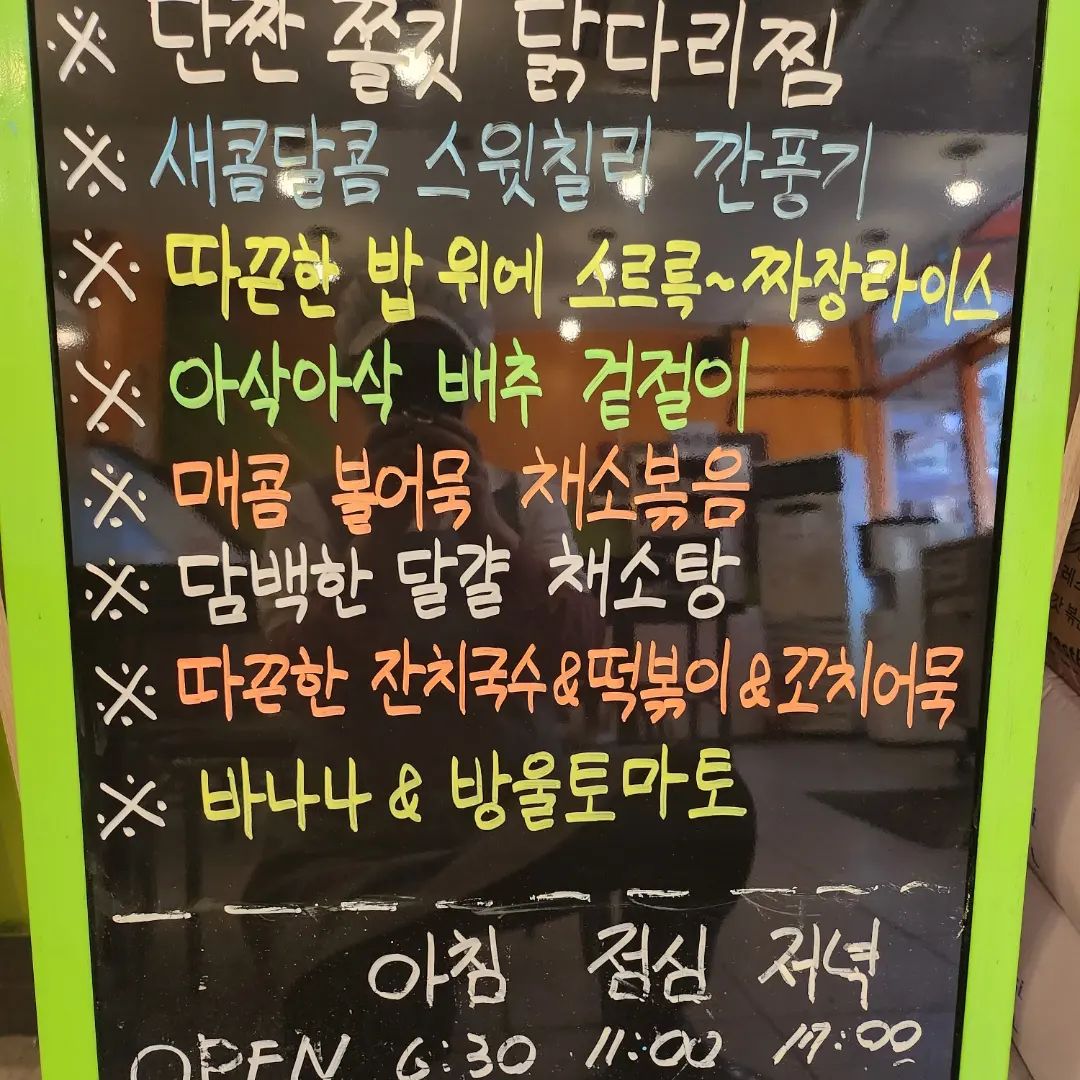 ※ 단짠 쫄깃 닭다리찜
※ 새콤달콤 스윗칠리 깐풍기
※ 따끈한 밥 위에 스르륵~짜장라이스
※ 아삭아삭 배추 겉절이
※ 매콤 불어묵 채소볶음
※ 담백한 달걀 채소탕
※ 따끈한 잔치국수&떡볶이&꼬치어묵
※ 바나나 & 방울토마토
아침 점심 저녁
OPEN 6:30 11:00 17:00